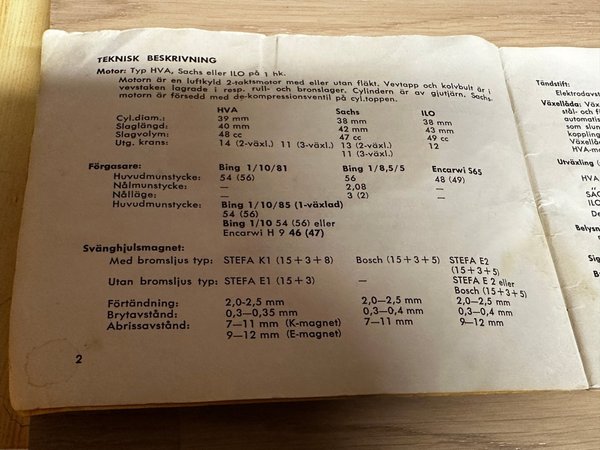 TEKNISK BESKRIVNING
Motor: Typ HVA, Sachs eller ILO på 1 hk.
Motorn är en luftkyld 2-taktsmotor med eller utan fläkt. Vevtapp och kolvbult är i
vevstaken lagrade i resp. rull- och bronslager. Cylindern är av gjutjärn. Sachs-
motorn är försedd med de-kompressionsventil på cyl.toppen.
HVA Sachs ILO
Cyl.diam.: 39 mm 38 mm 38 mm
Slaglängd: 40 mm 42 mm 43 mm
Slagvolym: 48 cc 47 cc 49 cc
Utg. krans: 14 (2-växl.) 11 (3-växl.) 13 (2-växl.) 12
11 (3-växl.)
Förgasare: Bing 1/10/81 Bing 1/8,5/5 Encarwi S65
Huvudmunstycke: 54 (56) 56 48 (49)
Nålmunstycke: — 2,08 —
Nålläge: — 3 (2) —
Huvudmunstycke: Bing 1/10/85 (1-växlad)
54 (56)
Bing 1/10 54 (56) eller
Encarwi H 9 46 (47)
Svänghjulsmagnet:
Med bromsljus typ: STEFA K1 (15+3+8) Bosch (15+3+5) STEFA E2
(15+3+5)
Utan bromsljus typ: STEFA E1 (15+3) — STEFA E 2 eller
Bosch (15+3+5)
Förtändning: 2,0-2,5 mm 2,0—2,5 mm 2,0—2,5 mm
Brytavstånd: 0,3—0,35 mm 0,3—0,4 mm 0,3—0,4 mm
Abrissavstånd: 7—11 mm (K-magnet) 7—11 mm 9—12 mm
9—12 mm (E-magnet)
2
Tändstift:
Elektrodavst
Växellåda: V
stål- och f
automatis
som slun
koppling
Växellå
HVA-mo
Utväxling (
HVA
SAC
ILO
De
Belysn
Sig